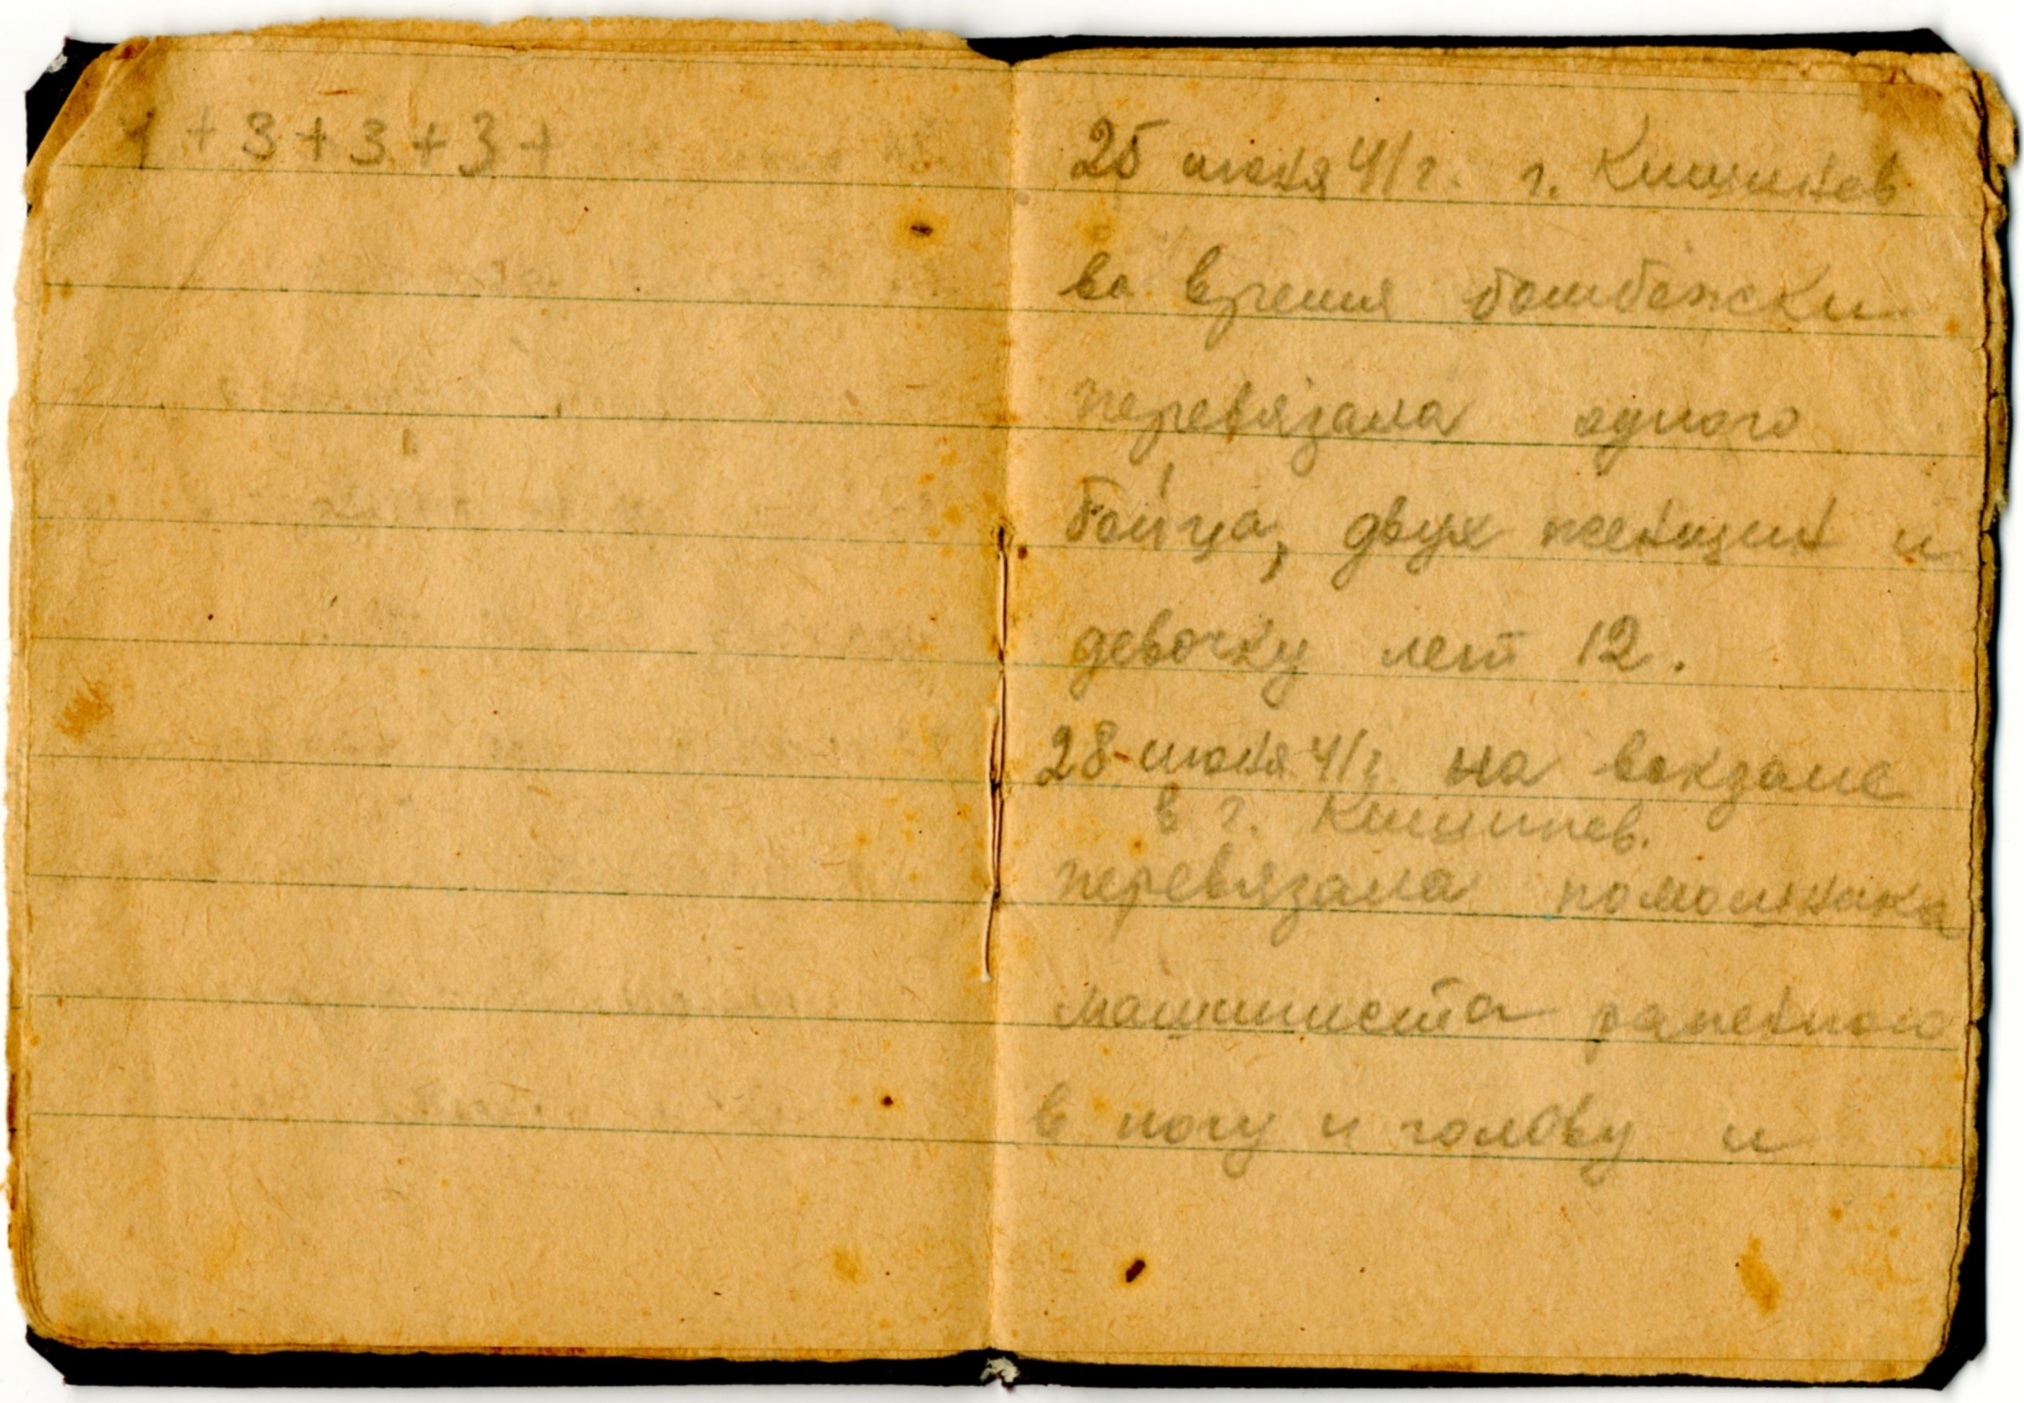 4+3+3+3+
25 июня 41 г. г. Кишинев
во время бомбежки
перевязала одного
бойца, двух женщин и
девочку лет 12.
28 июня 41 г. на вокзале
в г. Кишинев.
перевязала помошника
машиниста раненного
в ногу и голову и